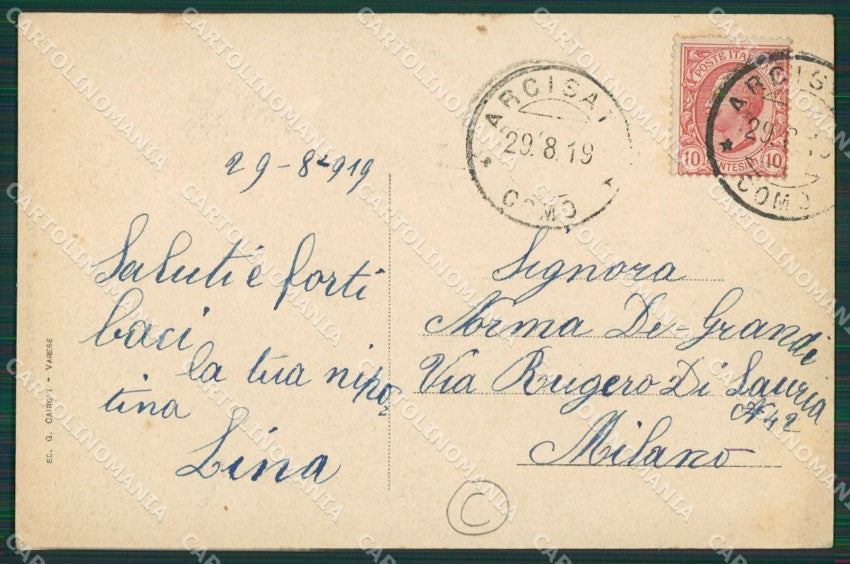 ARCISAT
29.8.19
COMO
POSTE ITAL
10 10
NTESIMI
ARCISA
29.8.19
COMO
29-8-919
Saluti e forti
baci
la tua nipo
tina
Lina
Signora
Norma De-Grandi
Via Rugero Di Lauria
N 42
Milano
ED. G. CAIROLI - VARESE
C
CARTOLINOMANIA